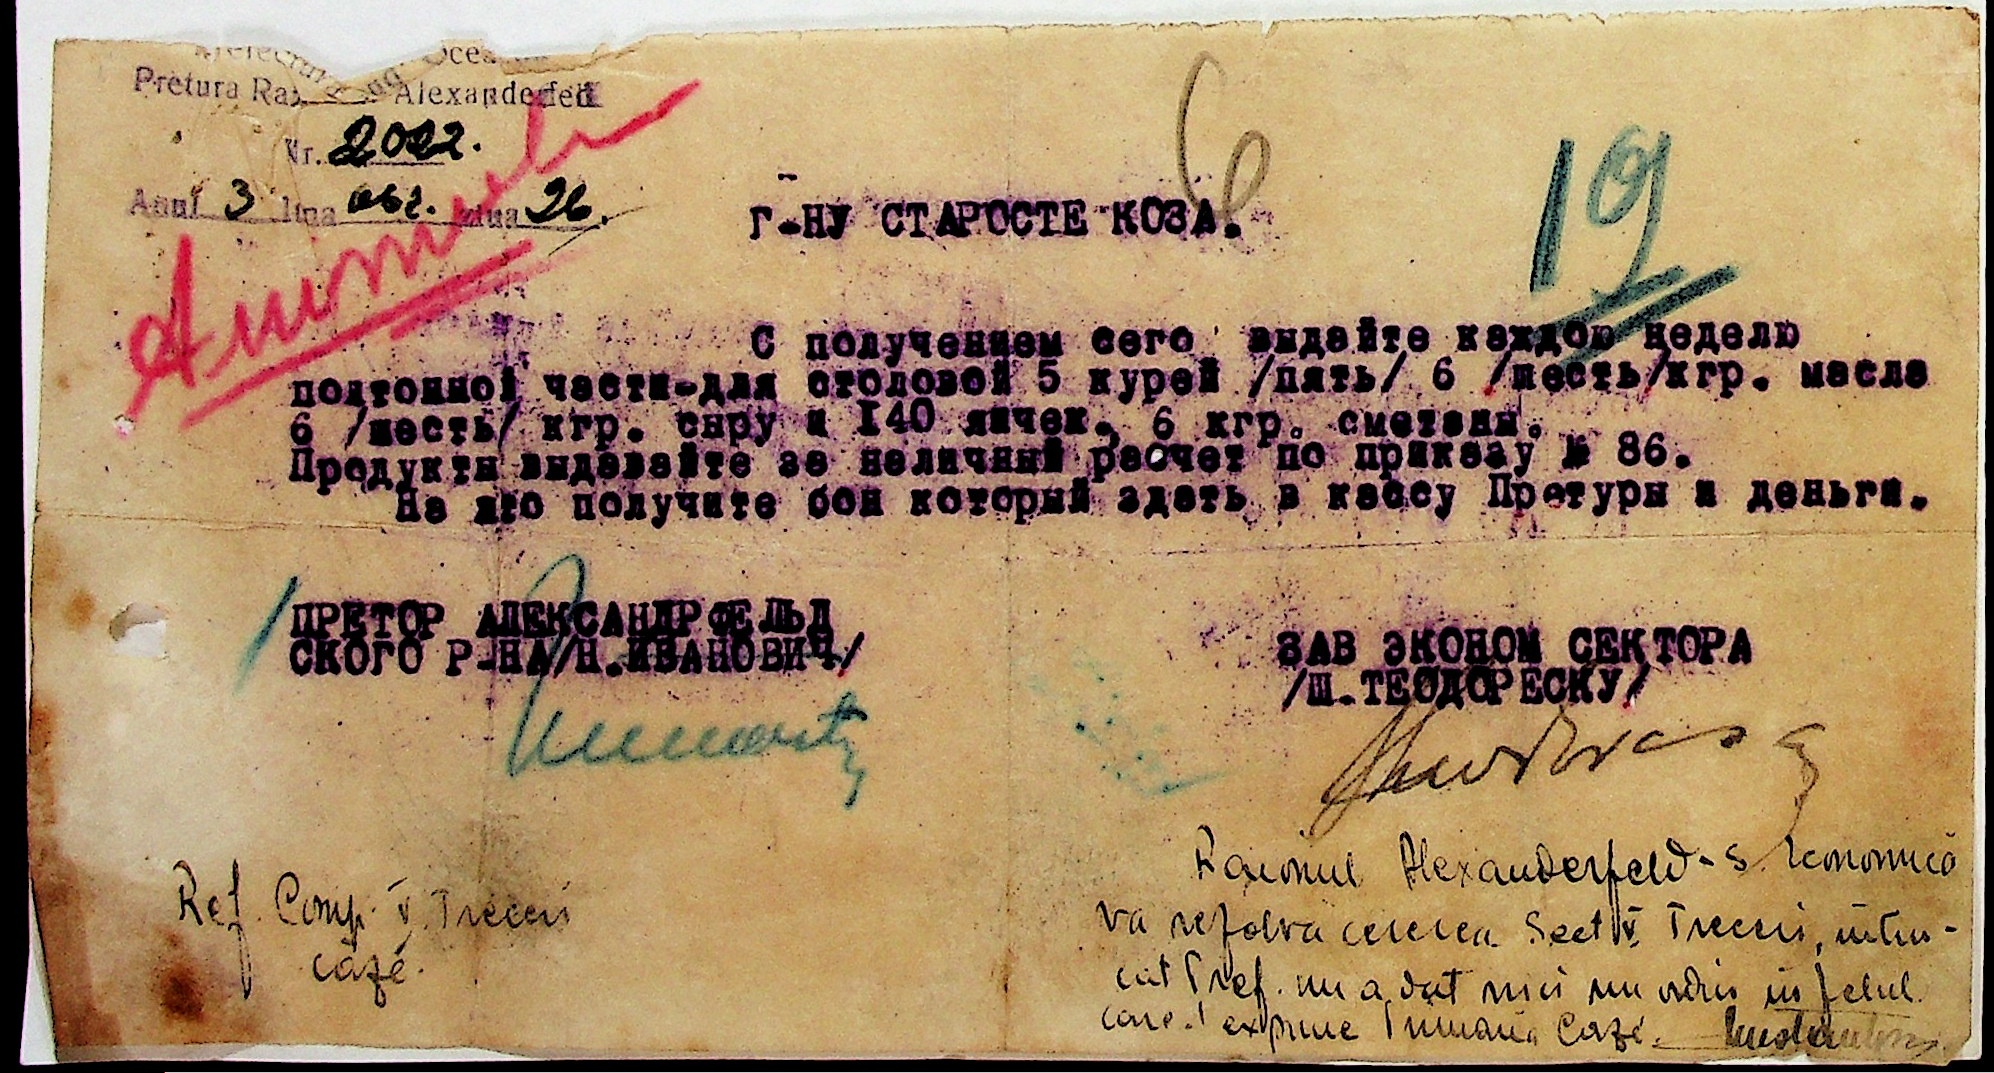 Pretura Alexanderfeld
Nr. 2022.
Anul 3 luna авг. ziua 26.
Animale
6
19
Г-НУ СТАРОСТЕ КОЗА.
С получением сего выдайте каждою неделю
понтонной части-для столовой 5 курей /пять/ 6 /шесть/кгр. масла
6 /шесть/ кгр. сыру и I40 яичек. 6 кгр. сметаны.
Продукты выдавайте за наличный расчет по приказу № 86.
На что получите бон который здать в кассу Претуры и деньги.
ПРЕТОР АЛЕКСАНДРФЕЛЬД
СКОГО Р-НА/Н.ИВАНОВИЧ/
ЗАВ ЭКОНОМ СЕКТОРА
/Ш.ТЕОДОРЕСКУ/
Ref. Comp. V. Treceri
Cază.
Raionul Alexanderfeld - S. Economică
va rezolva cererea Sect. V. Treceri, întru-
cât Pref. nu a dat nici un ordin în felul
care exprime Primăria Cază.